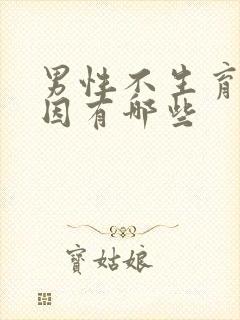 男性不生育
因有哪些
寶姑娘